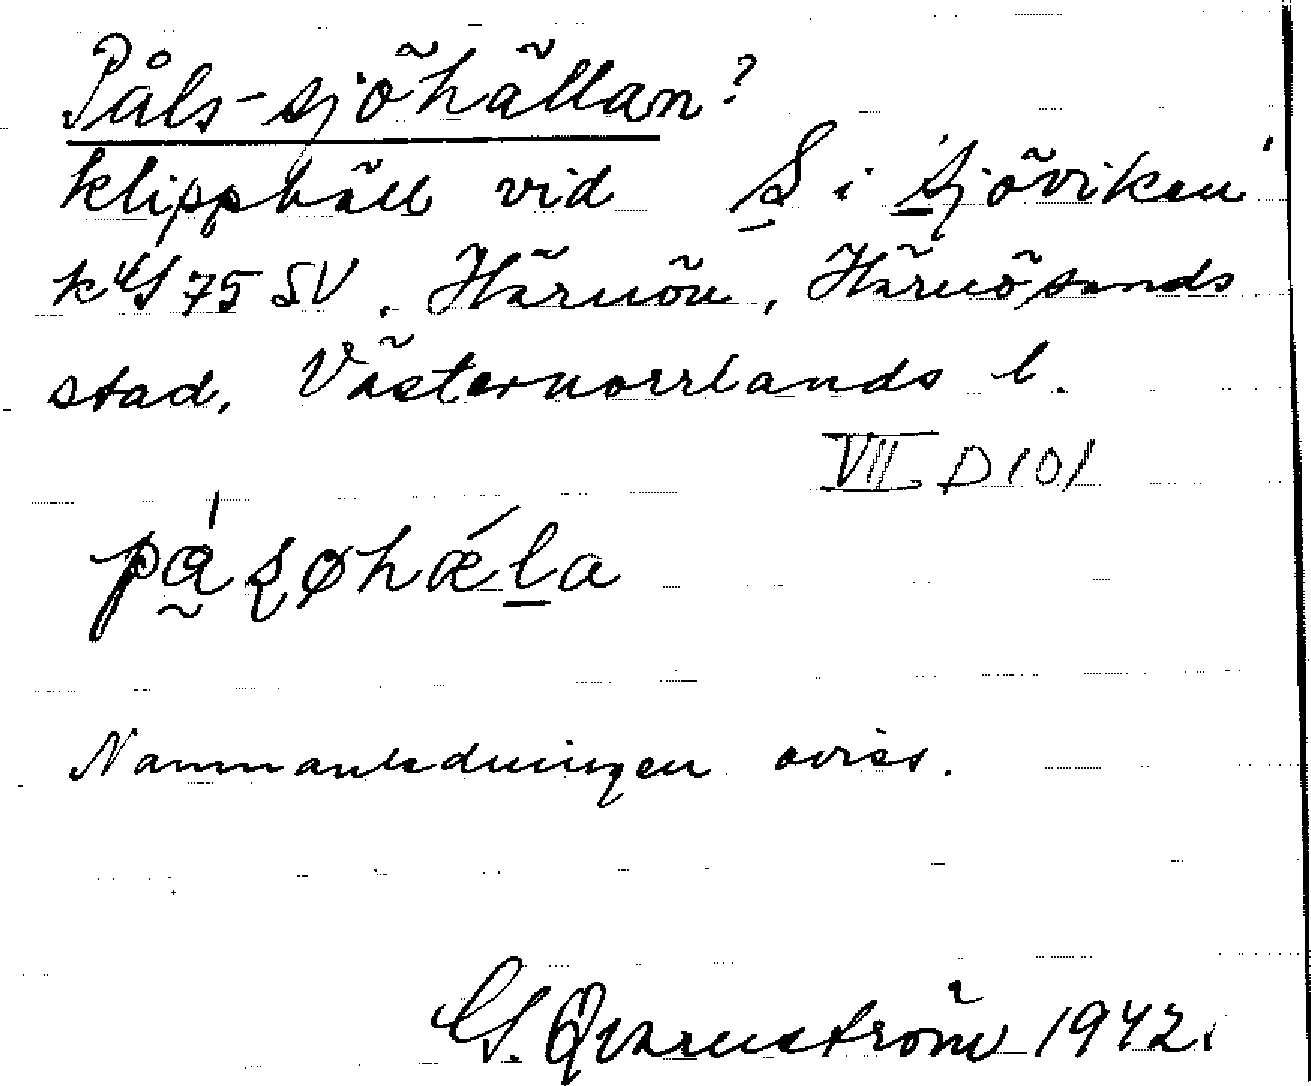 Påls-sjöhällan?
klipphäll vid S i Sjöviken
75 SV. Härnön, Härnösands
stad, Västernorrlands l.
VII D 101
Namnanledningen oviss.
G. Qvarnström 1942.